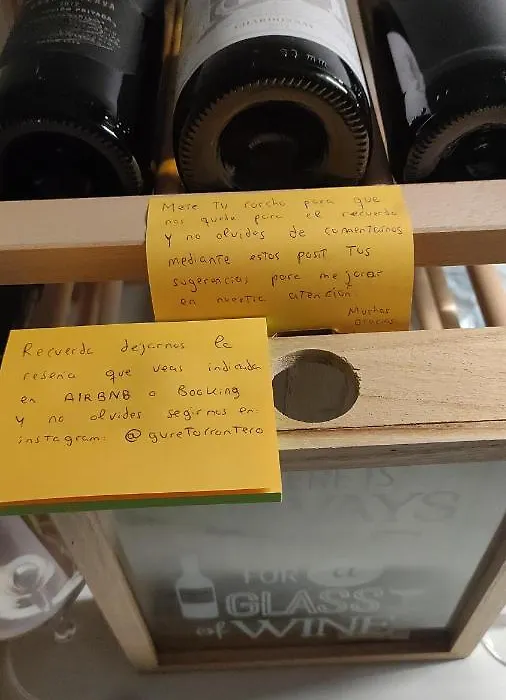 PRIVADA
CHARDONNAY
Mete Tu corcho para que
nos quede para el recuerdo
Y no olvides de comentarnos
mediante estos posit Tus
sugerencias para mejorar
en nuestra atención
Muchas
Gracias
Recuerda dejarnos la
reseña que veas indicada
en AIRBNB o Booking
Y no olvides segirnos en
instagram: @gureTorrontero
ALWAYS
FOR a
GLASS
of WINE